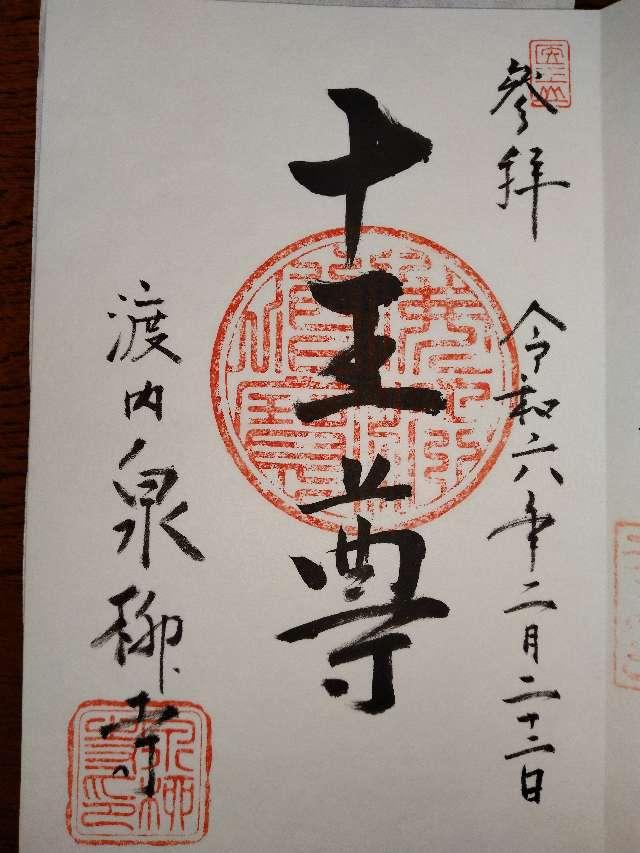 参拝
令和六年二月二十二日
十王尊
渡内 泉柳寺